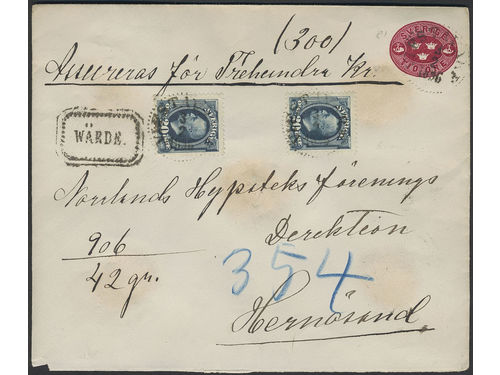 (300)
Assureras för Trehundra Kr.
SVERIGE
TIO ÖRE
WÄRDE.
20
SVERIGE
20
SVERIGE
Norrlands Hypoteks förenings
Direktion
906
42 gr.
354
Hernösand